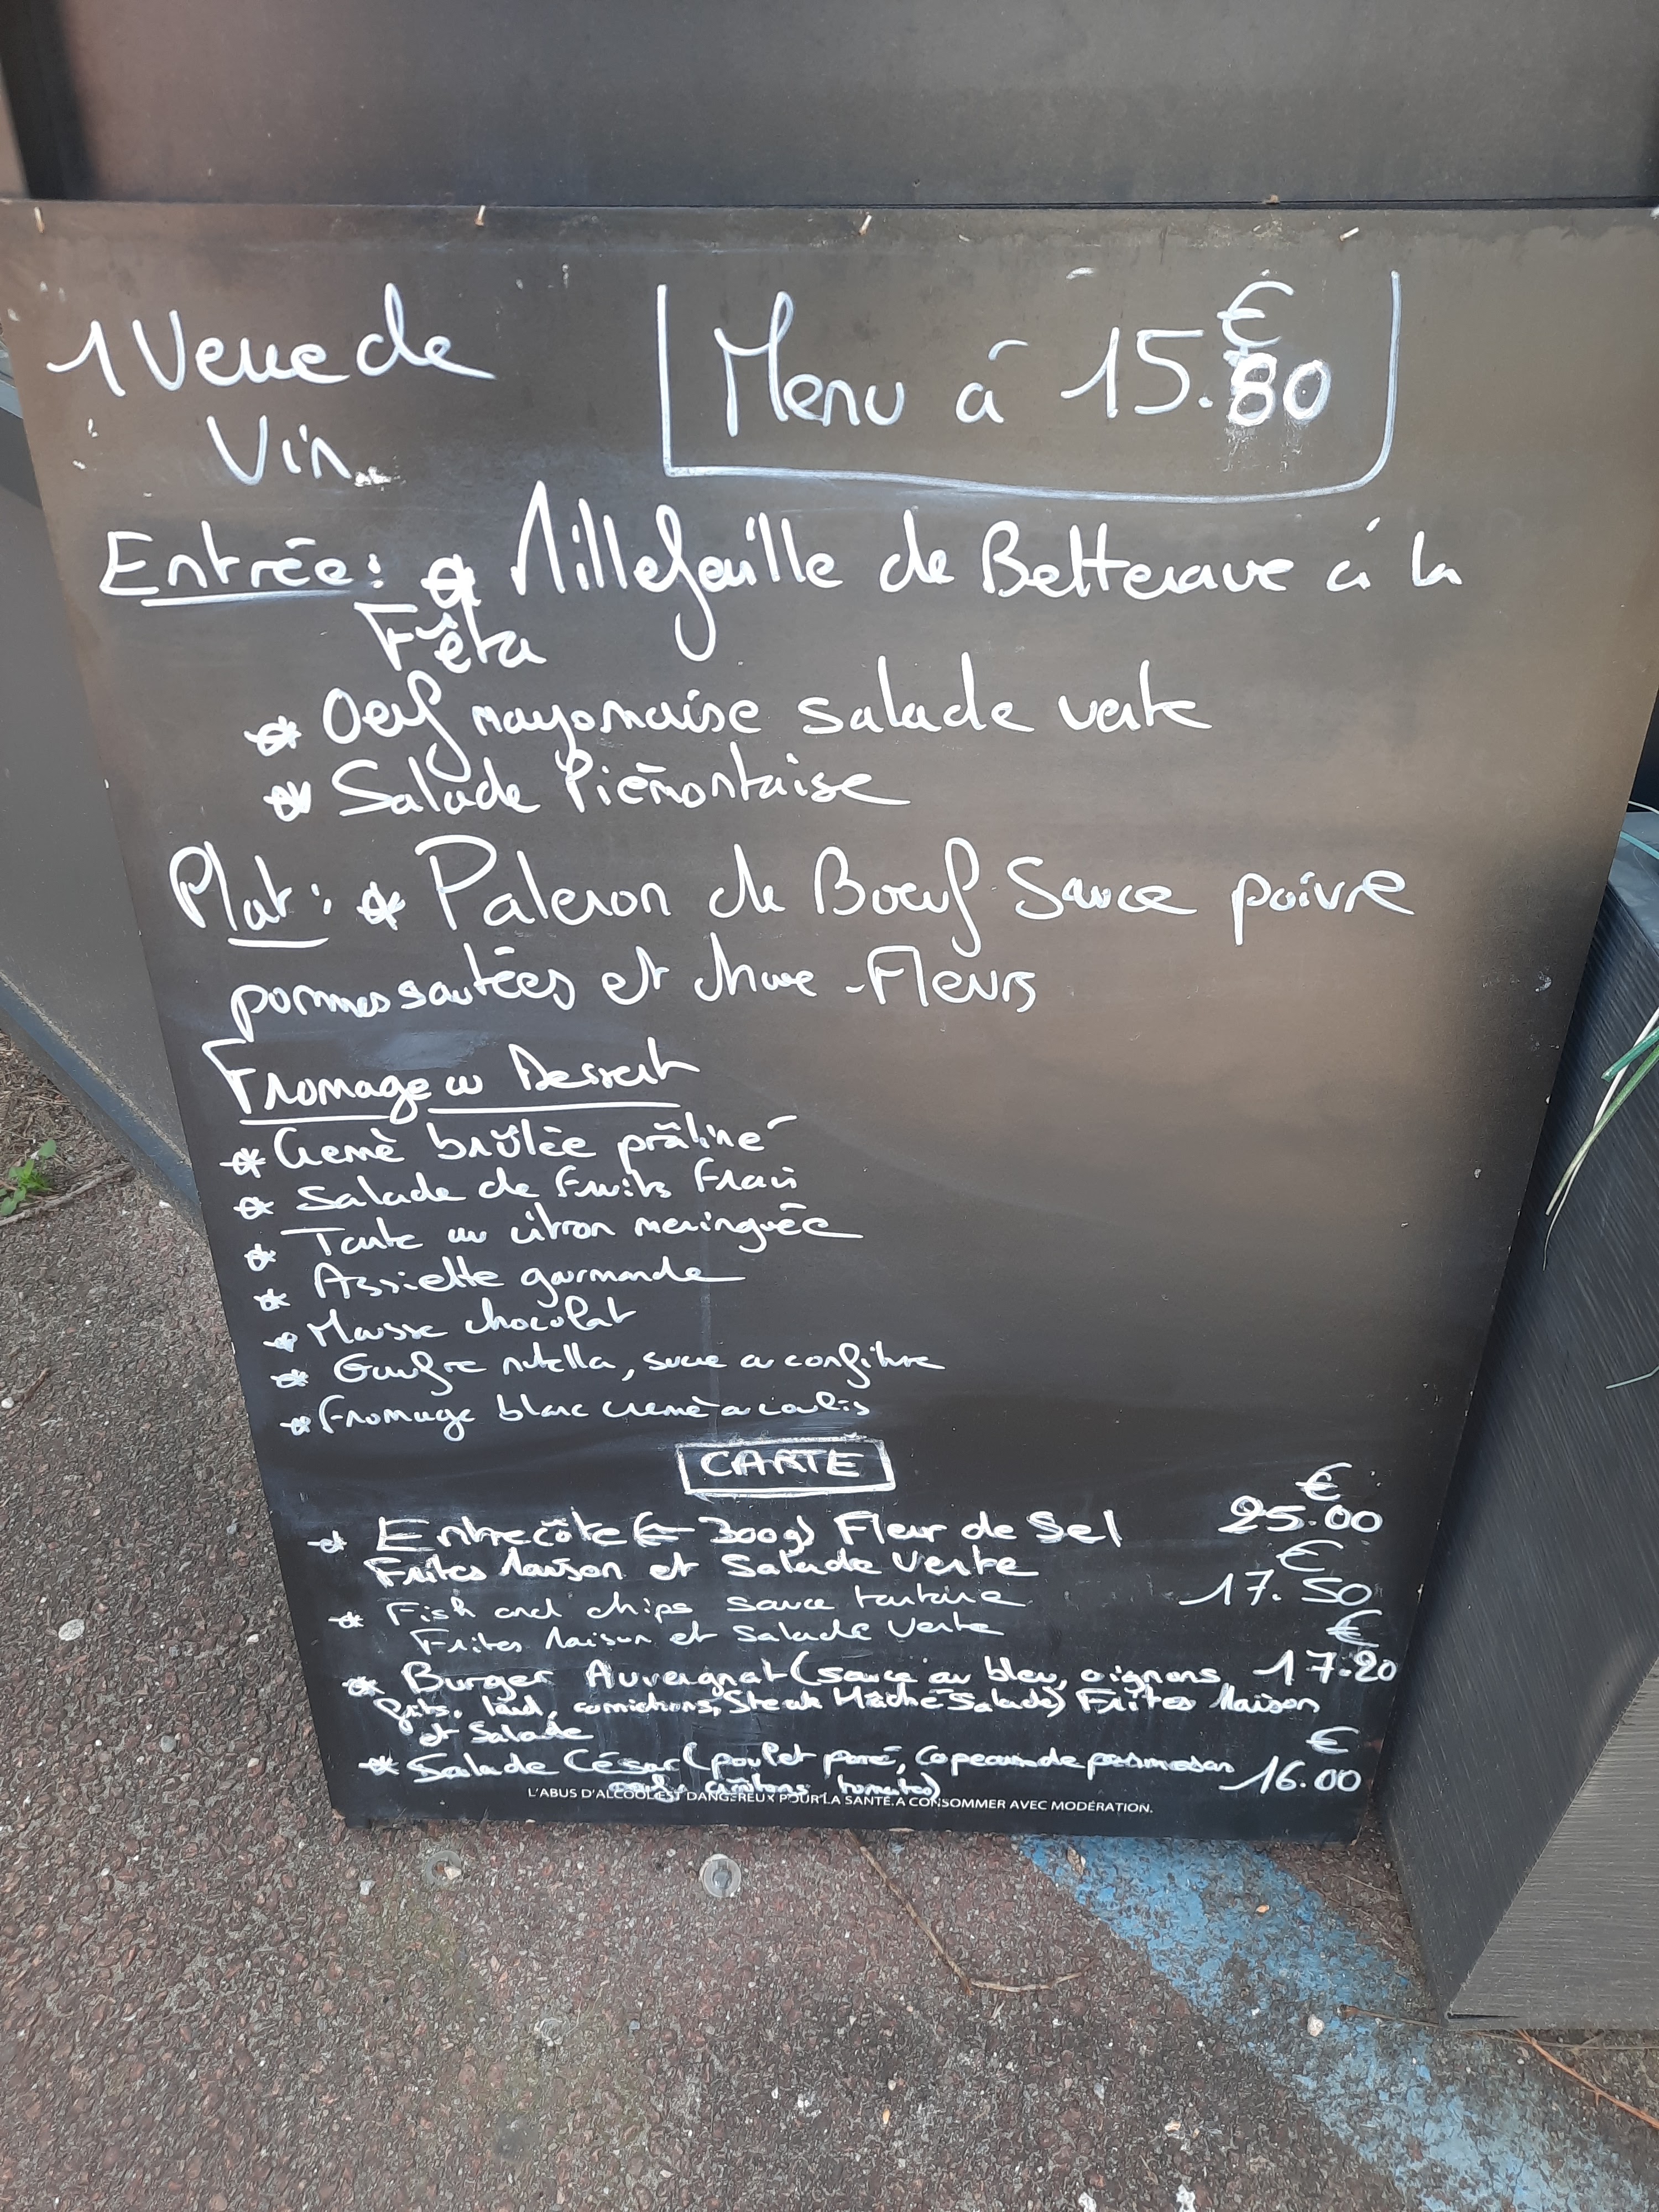 1 Verre de
Vin
Menu à 15.80 €
Entrée: * Millefeuille de Betterave à la
Fêta
* Oeuf mayonnaise salade verte
* Salade Piémontaise
Plat: * Paleron de Boeuf Sauce poivre
pommes sautées et choux-Fleurs
Fromage ou Dessert
* Cremè brûlée prâliné
* Salade de Fruits Frais
* Tarte au citron meringuée
* Assiette gourmande
* Mousse chocolat
* Gaufre nutella, sucre ou confiture
* Fromage blanc cremè ou coulis
CARTE
* Entrecôte (± 300g) Fleur de Sel 25.00 €
Frites Maison et Salade Verte
* Fish and chips sauce tartare 17.50 €
Frites Maison et Salade Verte
* Burger Auvergnat (sauce au bleu, oignons 17.20 €
frits, lard, cornichons, Steak Hâché Salade) Frites Maison
et Salade
* Salade César (poulet pané, Copeaux de parmesan 16.00 €
oeuf, crôutons, tomates)
L'ABUS D'ALCOOL EST DANGEREUX POUR LA SANTÉ. A CONSOMMER AVEC MODÉRATION.